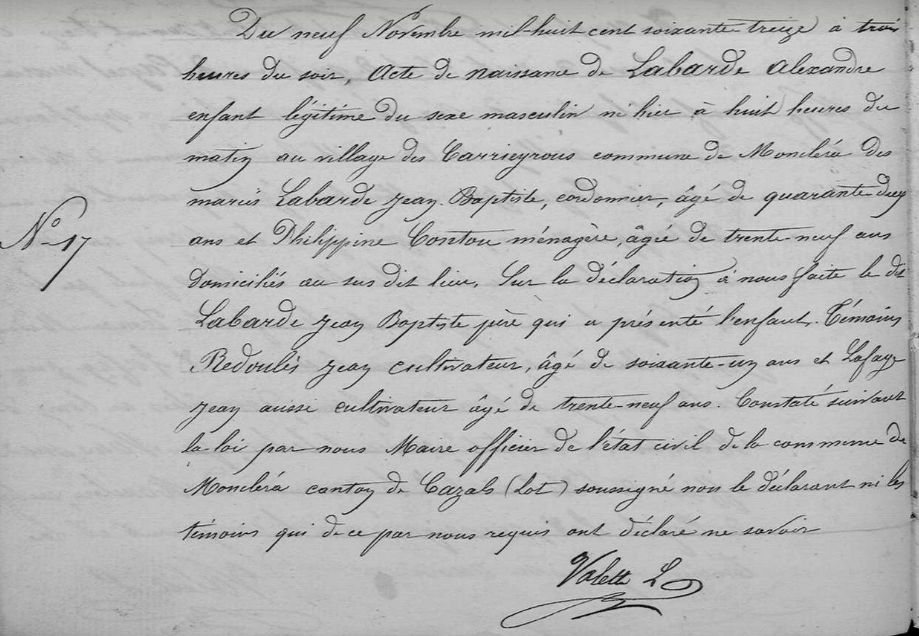 Du neuf Novembre mil-huit cent soixante-treize à trois
heures du soir, Acte de naissance de Labarde Alexandre
enfant légitime du sexe masculin né hier à huit heures du
matin au village des Carrieyrous commune de Montcléra des
mariés Labarde Jean Baptiste, cordonnier, âgé de quarante deux
ans et Philippine Costou ménagère, âgée de trente-neuf ans
domiciliés au sus dit lieu. Sur la déclaration à nous faite le dit
Labarde Jean Baptiste père qui a présenté l'enfant. Témoins
N° 17
Redoulès Jean cultivateur, âgé de soixante-un ans et Lafage
Jean aussi cultivateur âgé de trente-neuf ans. Constaté suivant
la loi par nous Maire officier de l'état civil de la commune de
Montcléra canton de Cazals (Lot) soussigné non le déclarant ni les
témoins qui de ce par nous requis ont déclaré ne savoir
Valette L